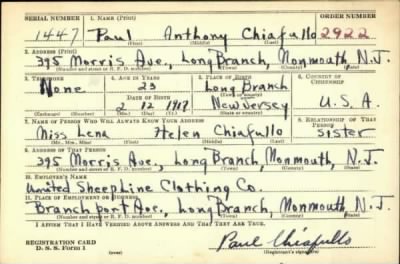 SERIAL NUMBER 1. NAME (Print) ORDER NUMBER
1447 Paul Anthony Chiafullo 2922
(First) (Middle) (Last)
2. ADDRESS (Print)
395 Morris Ave., Long Branch, Monmouth N.J.
(Number and street or R. F. D. number) (Town) (County) (State)
3. TELEPHONE 4. AGE IN YEARS 5. PLACE OF BIRTH 6. COUNTRY OF CITIZENSHIP
None 23 Long Branch
DATE OF BIRTH (Town or county)
2 12 1917 New Jersey U.S.A.
(Exchange) (Number) (Mo.) (Day) (Yr.) (State or country)
7. NAME OF PERSON WHO WILL ALWAYS KNOW YOUR ADDRESS 8. RELATIONSHIP OF THAT PERSON
Miss Lena Helen Chiafullo Sister
(Mr., Mrs., Miss) (First) (Middle) (Last)
9. ADDRESS OF THAT PERSON
395 Morris Ave., Long Branch, Monmouth, N.J.
(Number and street or R. F. D. number) (Town) (County) (State)
10. EMPLOYER'S NAME
United Sheep Line Clothing Co.
11. PLACE OF EMPLOYMENT OR BUSINESS
Branchport Ave., Long Branch, Monmouth, N.J.
(Number and street or R. F. D. number) (Town) (County) (State)
I AFFIRM THAT I HAVE VERIFIED ABOVE ANSWERS AND THAT THEY ARE TRUE.
REGISTRATION CARD
D. S. S. Form 1
Paul Chiafullo
(Registrant's signature)